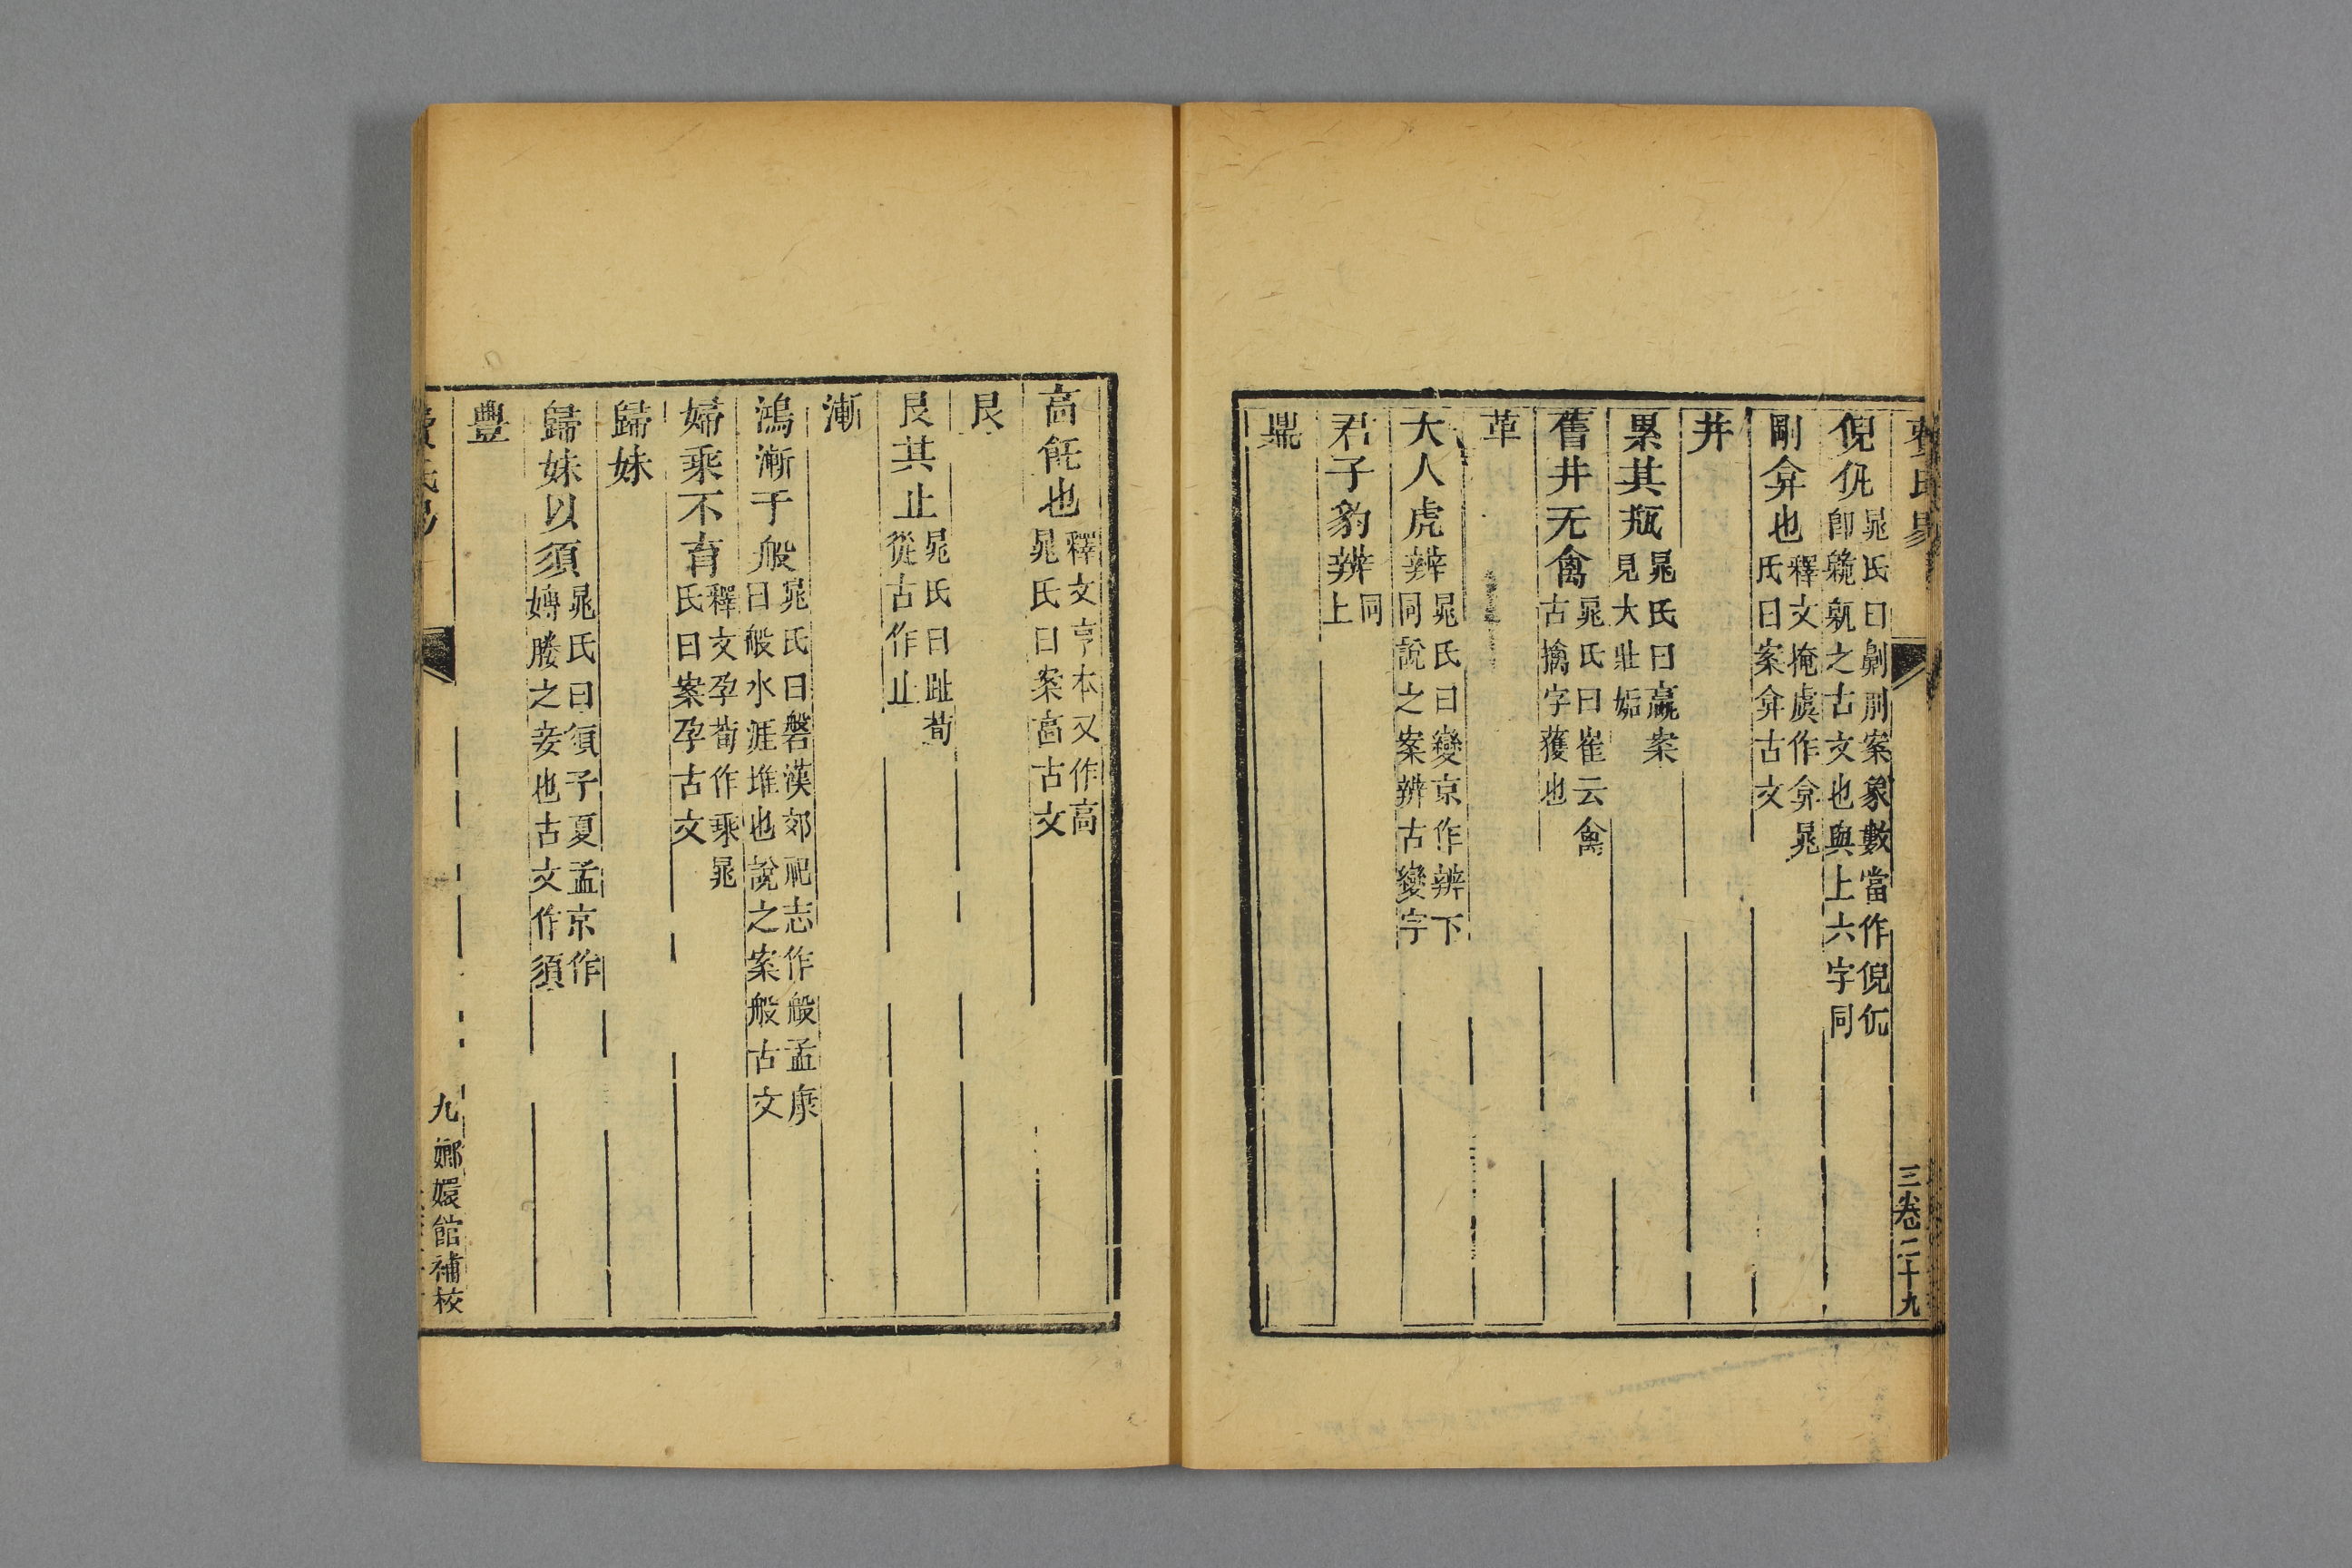 費氏易
三卷二十九
倪㐳晁氏曰劓刖案象數當作倪㐳
卽臲𠨜之古文也與上六字同
剛弇也釋文掩虞作弇晁
氏曰案弇古文
井
累其瓶晁氏曰羸案
見大壯姤
舊井无禽晁氏曰崔云禽
古擒字獲也
革
大人虎辨晁氏曰變京作辨下
同說之案辨古變字
君子豹辨同
上
鼎
亯飪也釋文亨本又作亯
晁氏曰案亯古文
艮
艮其止晁氏曰趾荀
從古作止
漸
鴻漸于般晁氏曰磐漢郊祀志作般孟康
曰般水涯堆也說之案般古文
婦乘不育釋文孕荀作乘晁
氏曰案孕古文
歸妹
歸妹以須晁氏曰須子夏孟京作
嬬媵之妾也古文作須
豐
九
嫏嬛館補校